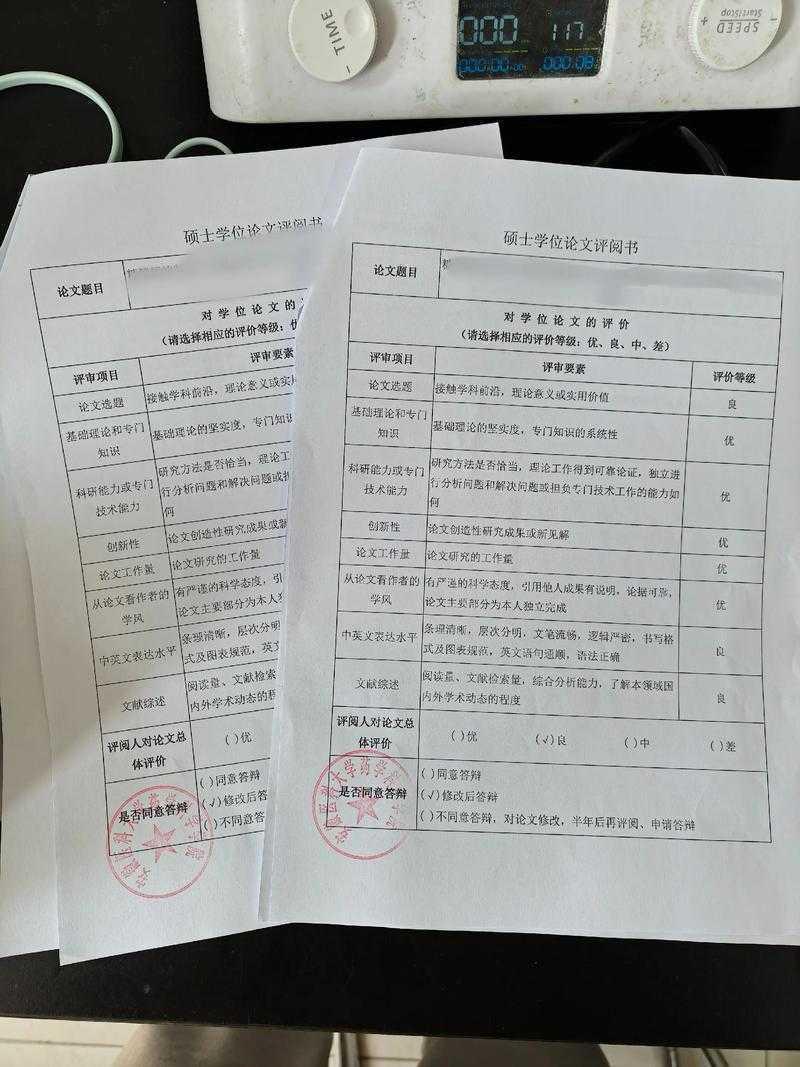 TIME
000
117
000:00:00
000:08
SPEED
Start/Stop
硕士学位论文评阅书
论文题目
对学位论文的
(请选择相应的评价等级：优
评审项目
评审要素
论文选题
接触学科前沿，理论意义或实用
基础理论和专门
知识
基础理论的坚实度，专门知识
科研能力或专门
技术能力
研究方法是否恰当，理论工
行分析问题和解决问题或担
何
创新性
论文创造性研究成果或新
论文工作量
论文研究的工作量
从论文看作者的
学风
有严谨的科学态度，引
论文主要部分为本人独
中英文表达水平
条理清晰，层次分明，文
式及图表规范，英文
文献综述
阅读量、文献检索
内外学术动态的程
评阅人对论文总
体评价
( )优
是否同意答辩
( )同意答辩
(√)修改后答
( )不同意答
硕士学位论文评阅书
论文题目
对学位论文的评价
(请选择相应的评价等级：优、良、中、差)
评审项目
评审要素
评价等级
论文选题
接触学科前沿，理论意义或实用价值
良
基础理论和专门
知识
基础理论的坚实度，专门知识的系统性
优
科研能力或专门
技术能力
研究方法是否恰当，理论工作得到可靠论证，独立进
行分析问题和解决问题或担负专门技术工作的能力如
何
优
创新性
论文创造性研究成果或新见解
优
论文工作量
论文研究的工作量
优
从论文看作者的
学风
有严谨的科学态度，引用他人成果有说明，论据可靠，
论文主要部分为本人独立完成
优
中英文表达水平
条理清晰，层次分明，文笔流畅，逻辑严密，书写格
式及图表规范，英文语句通顺，语法正确
良
文献综述
阅读量、文献检索量，综合分析能力，了解本领域国
内外学术动态的程度
良
评阅人对论文总
体评价
( )优
(√)良
( )中
( )差
是否同意答辩
( )同意答辩
(√)修改后答辩
( )不同意答辩，对论文修改，半年后再评阅、申请答辩
安徽医科大学药学科学学院